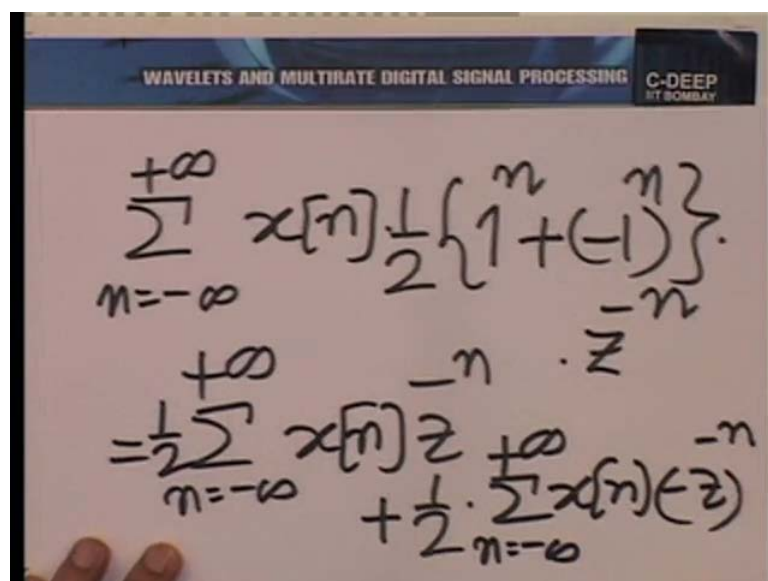 WAVELETS AND MULTIRATE DIGITAL SIGNAL PROCESSING
C-DEEP
IIT BOMBAY
+∞
Σ x[n].1/2{1^n+(-1)^n}.
n=-∞
.z^-n
+∞
=1/2 Σ x[n]z^-n
n=-∞
+∞
+1/2.Σx[n](-z)^-n
n=-∞